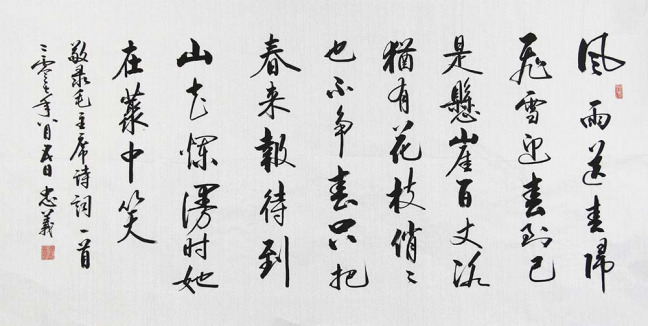 風雨送春歸
飛雪迎春到已
是懸崖百丈冰
猶有花枝俏〻
也不争春只把
春来報待到
山花爛漫时她
在叢中笑
敬录毛主席詩词一首
年八月 日 忠義